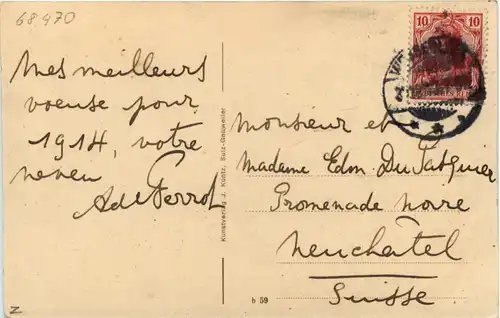 68.470
Mes meilleurs
voeux pour
1914, votre
neveu
Ad. de Perrot
Kunstverlag J. Kuntz, Sulz-Gebweiler
10 10
Monsieur et
Madame Edm. DuPasquier
Promenade Noire
Neuchâtel
Suisse
b 59
Z